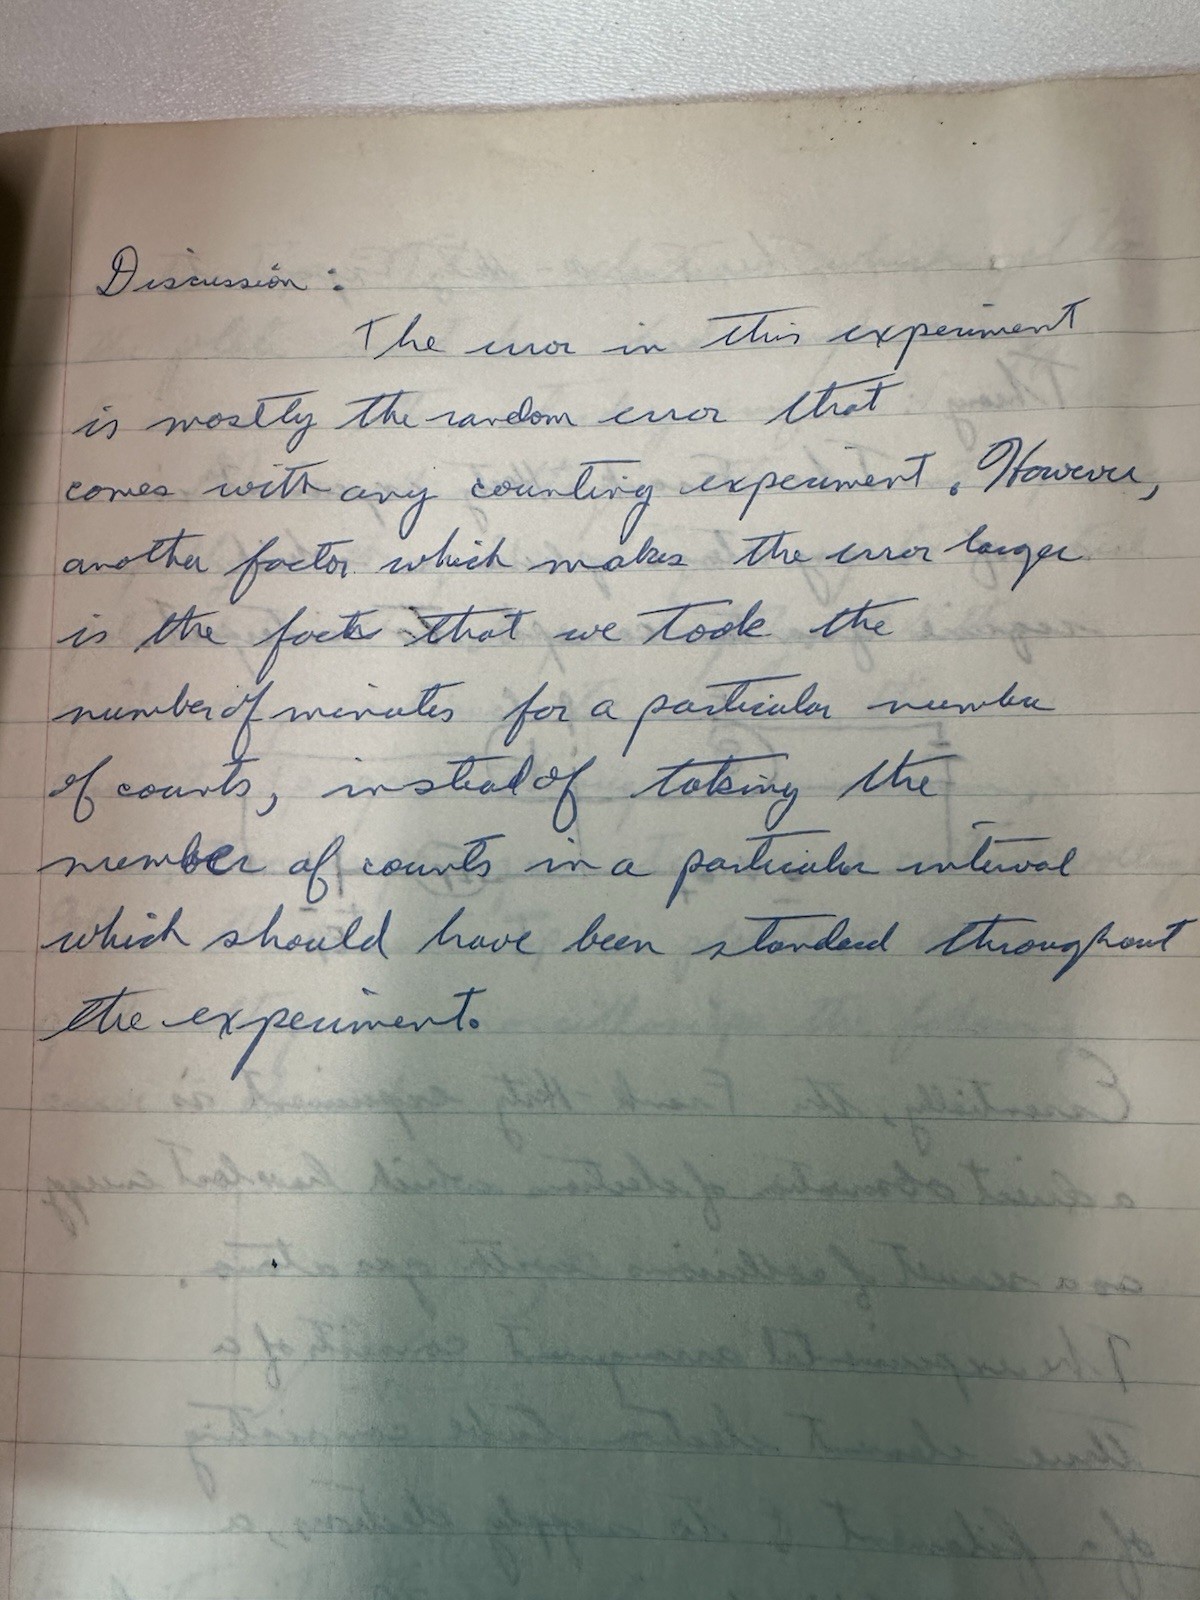 Discussion:
The error in this experiment
is mostly the random error that
comes with any counting experiment. However,
another factor which makes the error larger
is the fact that we took the
number of minutes for a particular number
of counts, instead of taking the
number of counts in a particular interval
which should have been standard throughout
the experiment.